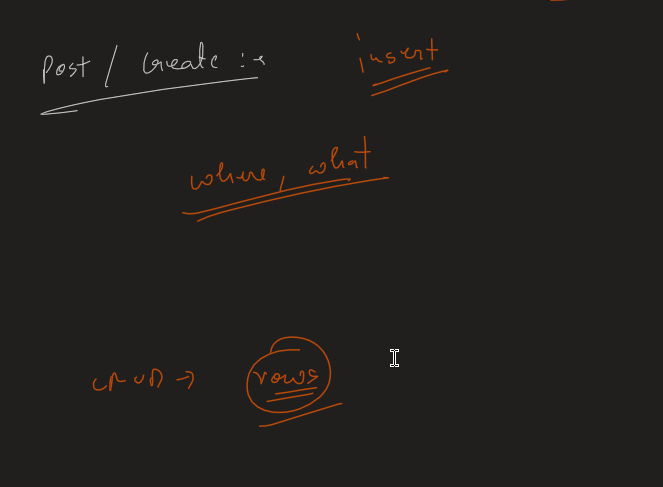 Post / Create :-
insert
where, what
CRUD →
rows